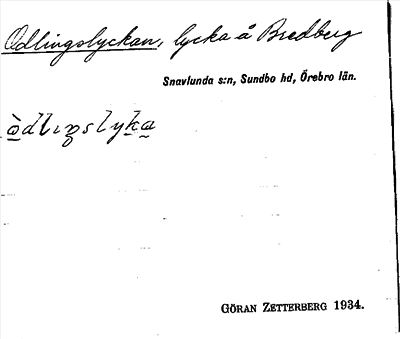 Odlingslyckan, lycka å Bredberg
Snavlunda s:n, Sundbo hd, Örebro län.
òdlıŋslyka
GÖRAN ZETTERBERG 1934.